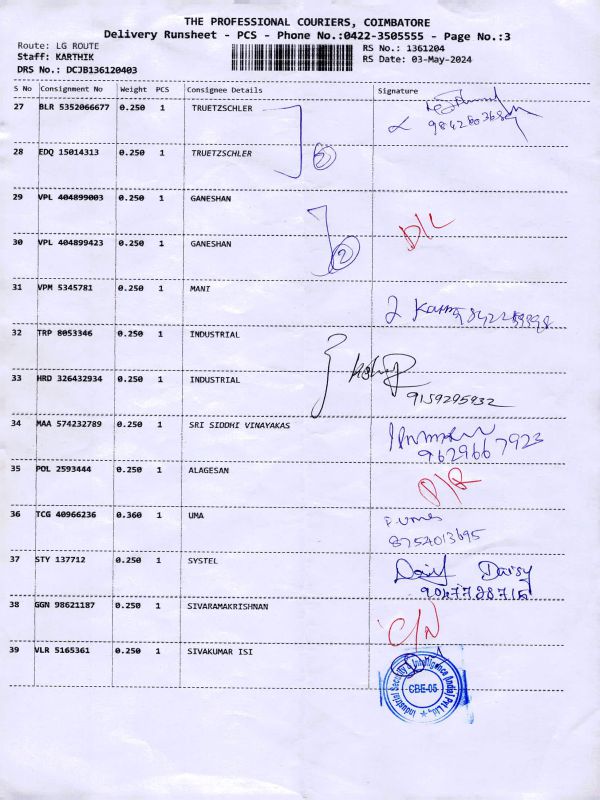 THE PROFESSIONAL COURIERS, COIMBATORE
Delivery Runsheet - PCS - Phone No.:0422-3505555 - Page No.:3
Route: LG ROUTE RS No.: 1361204
Staff: KARTHIK RS Date: 03-May-2024
DRS No.: DCJB136120403
S No Consignment No Weight PCS Consignee Details Signature
27 BLR 5352066677 0.250 1 TRUETZSCHLER
28 EDQ 15014313 0.250 1 TRUETZSCHLER
29 VPL 404899003 0.250 1 GANESHAN
D/L
30 VPL 404899423 0.250 1 GANESHAN
2
31 VPM 5345781 0.250 1 MANI
32 TRP 8053346 0.250 1 INDUSTRIAL
33 HRD 326432934 0.250 1 INDUSTRIAL
9159295932
34 MAA 574232789 0.250 1 SRI SIDDHI VINAYAKAS
9629667923
35 POL 2593444 0.250 1 ALAGESAN
36 TCG 40966236 0.360 1 UMA
8754013695
37 STY 137712 0.250 1 SYSTEL
Daisy
9047728715
38 GGN 98621187 0.250 1 SIVARAMAKRISHNAN
C/N
39 VLR 5165361 0.250 1 SIVAKUMAR ISI
CBE-05